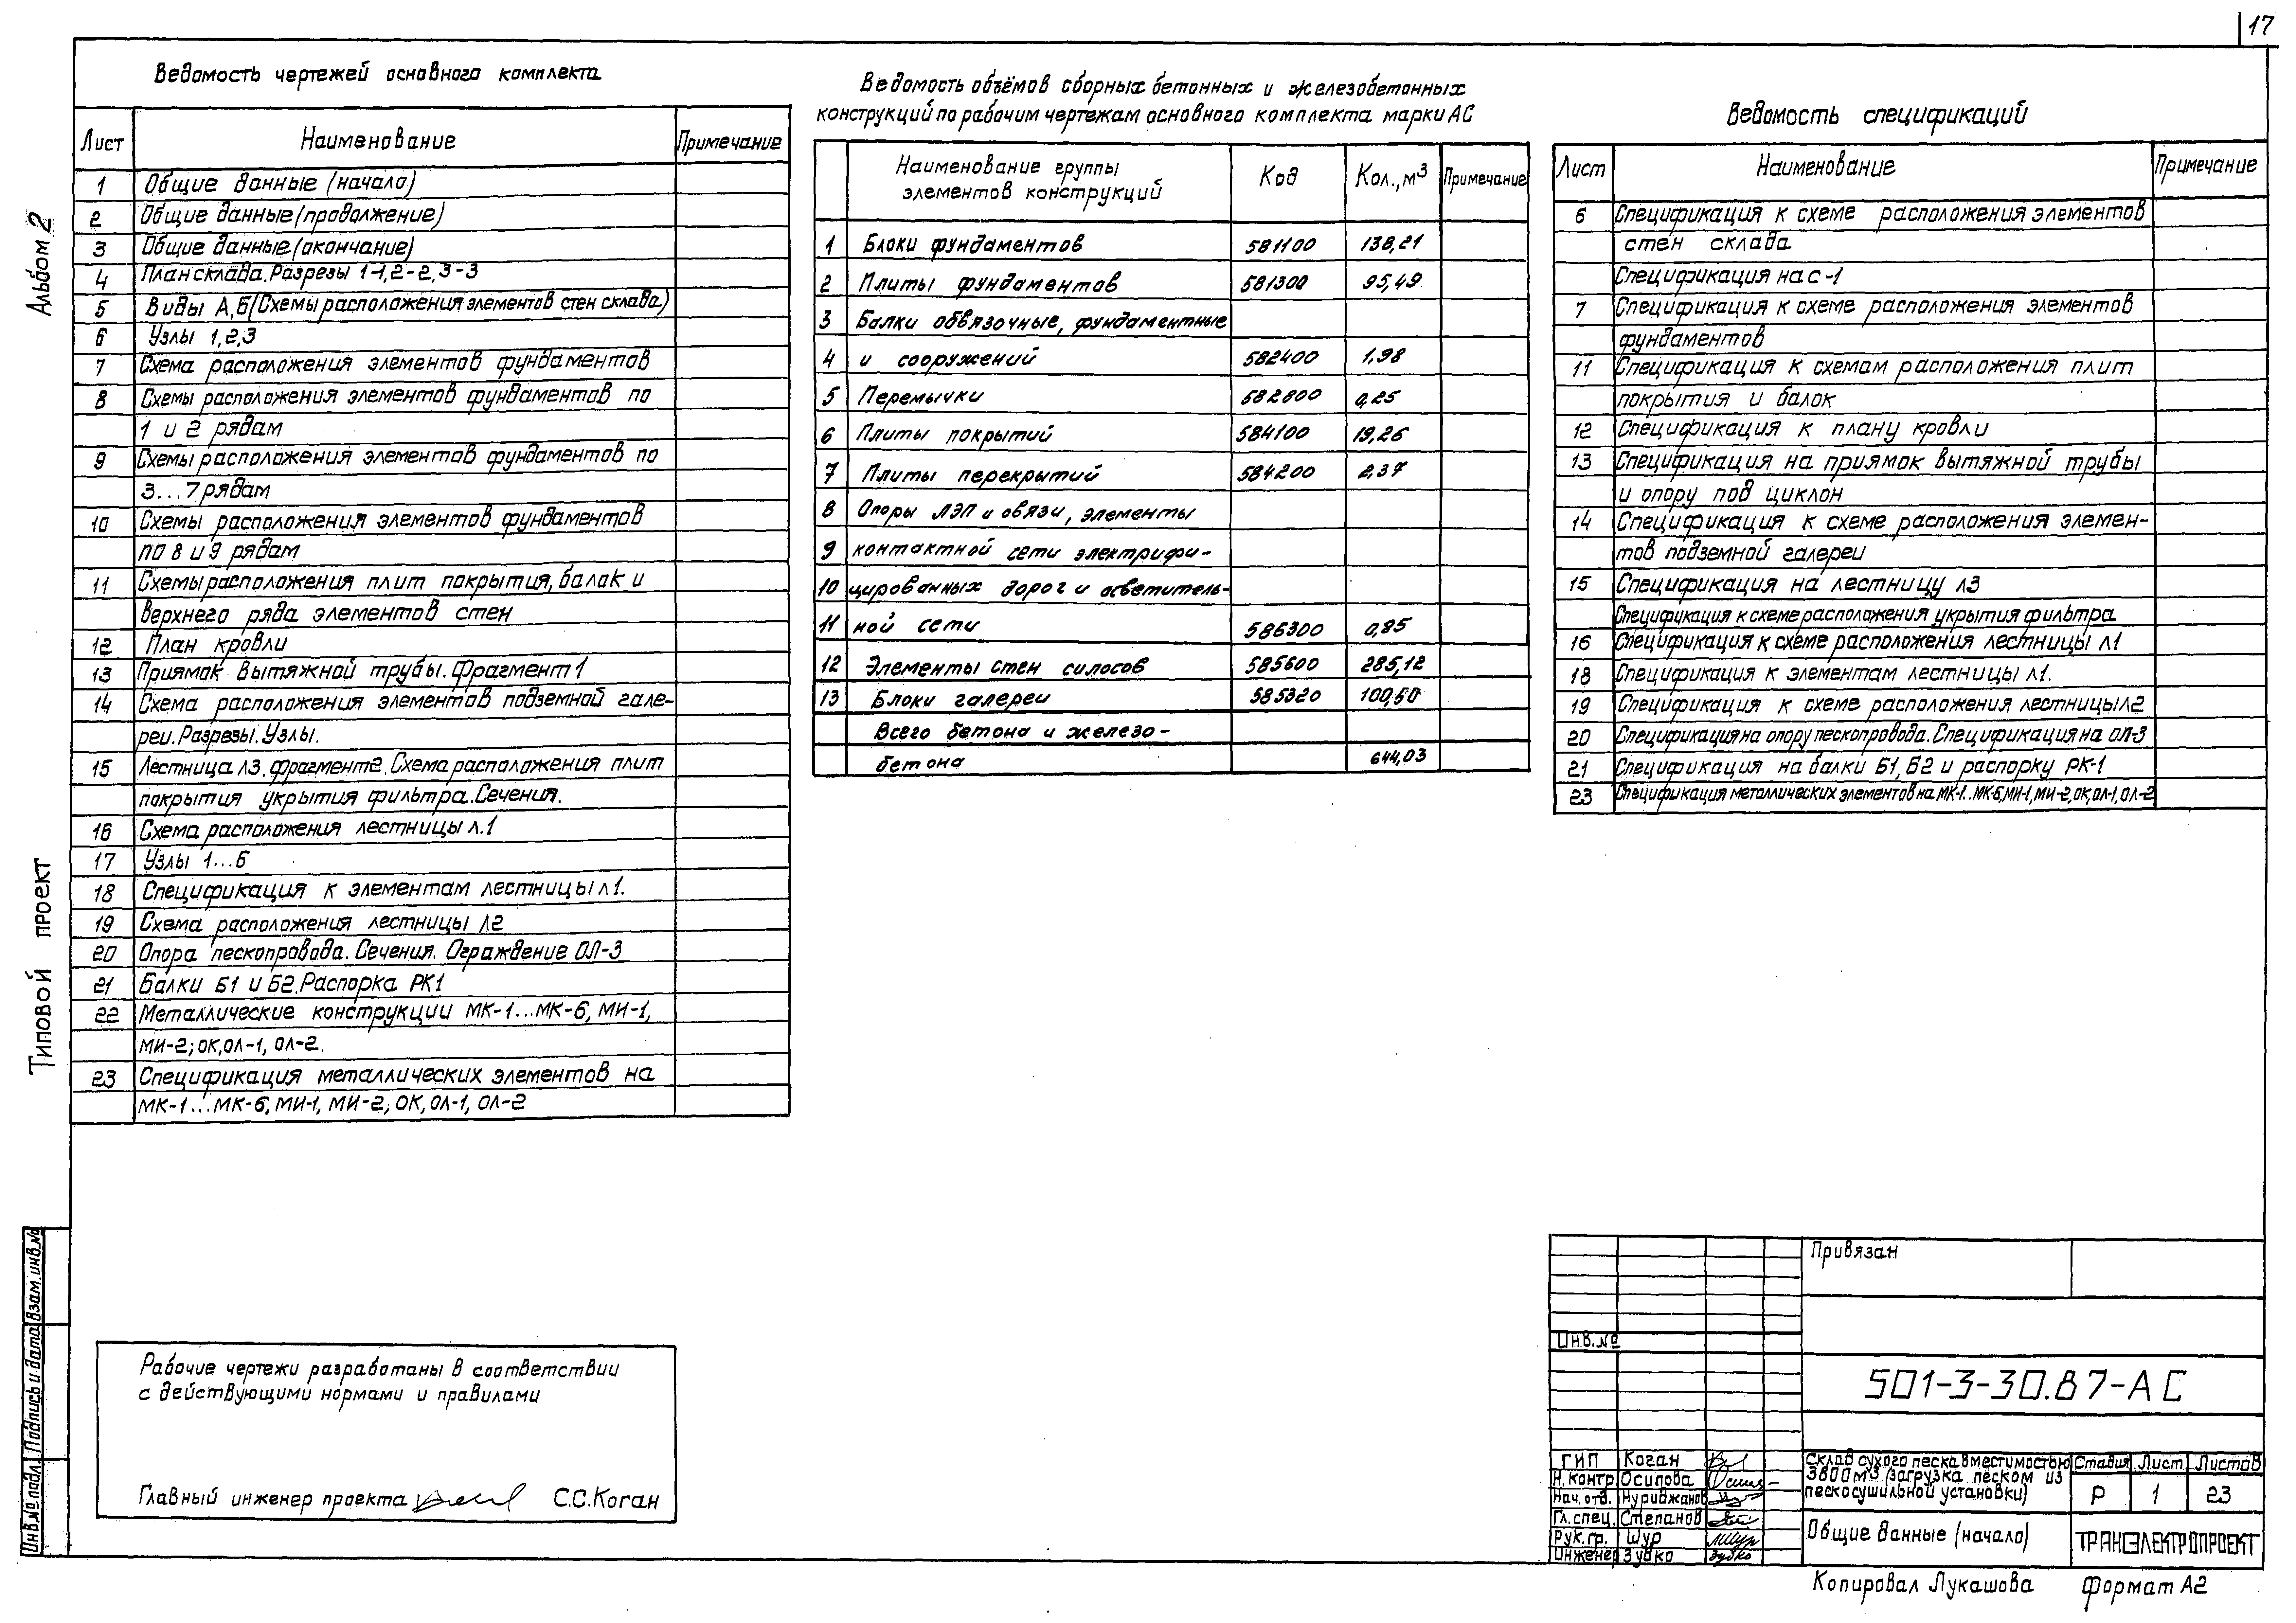 17
Альбом 2
Типовой проект
Ведомость чертежей основного комплекта
Лист Наименование Примечание
1 Общие данные (начало)
2 Общие данные (продолжение)
3 Общие данные (окончание)
4 План склада. Разрезы 1-1, 2-2, 3-3
5 Виды А, Б (Схемы расположения элементов стен склада)
6 Узлы 1,2,3
7 Схема расположения элементов фундаментов
8 Схемы расположения элементов фундаментов по
1 и 2 рядам
9 Схемы расположения элементов фундаментов по
3...7 рядам
10 Схемы расположения элементов фундаментов
по 8 и 9 рядам
11 Схемы расположения плит покрытия, балок и
верхнего ряда элементов стен
12 План кровли
13 Приямок вытяжной трубы. Фрагмент 1
14 Схема расположения элементов подземной гале-
реи. Разрезы. Узлы.
15 Лестница Л3. Фрагмент 2. Схема расположения плит
покрытия укрытия фильтра. Сечения.
16 Схема расположения лестницы Л.1
17 Узлы 1...6
18 Спецификация к элементам лестницы Л1.
19 Схема расположения лестницы Л2
20 Опора пескопровода. Сечения. Ограждение ОЛ-3
21 Балки Б1 и Б2. Распорка РК1
22 Металлические конструкции МК-1...МК-6, МИ-1,
МИ-2; ОК, ОЛ-1, ОЛ-2.
23 Спецификация металлических элементов на
МК-1...МК-6, МИ-1, МИ-2; ОК, ОЛ-1, ОЛ-2
Ведомость объёмов сборных бетонных и железобетонных
конструкций по рабочим чертежам основного комплекта марки АС
Наименование группы элементов конструкций Код Кол., м³ Примечание
1 Блоки фундаментов 581100 138,21
2 Плиты фундаментов 581300 95,49
3 Балки обвязочные, фундаментные
4 и сооружений 582400 1.98
5 Перемычки 582800 0,25
6 Плиты покрытий 584100 19,26
7 Плиты перекрытий 584200 2,37
8 Опоры ЛЭП и связи, элементы
9 контактной сети электрифи-
10 цированных дорог и осветитель-
11 ной сети 586300 0,85
12 Элементы стен силосов 585600 285,12
13 Блоки галереи 585320 100,50
Всего бетона и железо-
бетона 644,03
Ведомость спецификаций
Лист Наименование Примечание
6 Спецификация к схеме расположения элементов
стен склада
Спецификация на С-1
7 Спецификация к схеме расположения элементов
фундаментов
11 Спецификация к схемам расположения плит
покрытия и балок
12 Спецификация к плану кровли
13 Спецификация на приямок вытяжной трубы
и опору под циклон
14 Спецификация к схеме расположения элемен-
тов подземной галереи
15 Спецификация на лестницу Л3
Спецификация к схеме расположения укрытия фильтра
16 Спецификация к схеме расположения лестницы Л1
18 Спецификация к элементам лестницы Л1.
19 Спецификация к схеме расположения лестницы Л2
20 Спецификация на опору пескопровода. Спецификация на ОЛ-3
21 Спецификация на балки Б1, Б2 и распорку РК-1
23 Спецификация металлических элементов на МК-1...МК-6, МИ-1, МИ-2, ОК, ОЛ-1, ОЛ-2
Рабочие чертежи разработаны в соответствии
с действующими нормами и правилами
Главный инженер проекта С.С. Коган
Инв.№ подл. Подпись и дата Взам.инв.№
Привязан
Инв.№
501-3-30.87-АС
ГИП Коган
Н.контр. Осипова
Нач.отд. Нуриджанов
Гл.спец. Степанов
Рук.гр. Шур
Инженер Зубко
Склад сухого песка вместимостью
3800 м3 (загрузка песком из
пескосушильной установки)
Стадия Лист Листов
Р 1 23
Общие данные (начало)
ТРАНСЭЛЕКТРОПРОЕКТ
Копировал Лукашова Формат А2